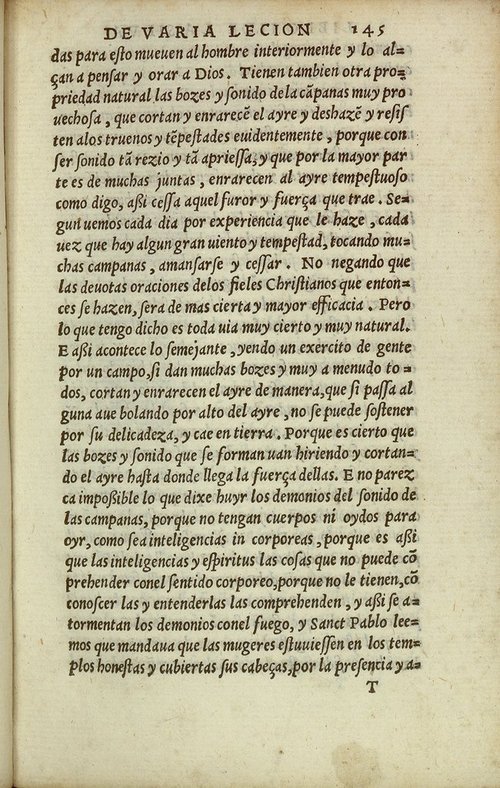 DE VARIA LECION 145
das para esto mueuen al hombre interiormente y lo al=
çan a pensar y orar a Dios. Tienen tambien otra pro=
priedad natural las bozes y sonido dela cãpanas muy pro
uechosa, que cortan y enrarecẽ el ayre y deshazẽ y resis
ten alos truenos y tẽpestades euidentemente, porque con
ser sonido tã rezio y tã apriessa, y que por la mayor par
te es de muchas juntas, enrarecen al ayre tempestuoso
como digo, assi cessa aquel furor y fuerça que trae. Se=
gun uemos cada dia por experiencia que le haze, cada
uez que hay algun gran uiento y tempestad, tocando mu=
chas campanas, amansarse y cessar. No negando que
las deuotas oraciones delos fieles Christianos que enton=
ces se hazen, sera de mas cierta y mayor efficacia. Pero
lo que tengo dicho es toda uia muy cierto y muy natural.
E assi acontece lo semejante, yendo un exercito de gente
por un campo, si dan muchas bozes y muy a menudo to=
dos, cortan y enrarecen el ayre de manera, que si passa al
guna aue bolando por alto del ayre, no se puede sostener
por su delicadeza, y cae en tierra. Porque es cierto que
las bozes y sonido que se forman uan hiriendo y cortan=
do el ayre hasta donde llega la fuerça dellas. E no parez
ca impossible lo que dixe huyr los demonios del sonido de
las campanas, porque no tengan cuerpos ni oydos para
oyr, como sea inteligencias in corporeas, porque es assi
que las inteligencias y espiritus las cosas que no puede cõ
prehender conel sentido corporeo, porque no le tienen, cõ
conoscer las y entenderlas las comprehenden, y assi se a=
tormentan los demonios conel fuego, y Sanct Pablo lee=
mos que mandaua que las mugeres estuuiessen en los tem=
plos honestas y cubiertas sus cabeças, por la presencia y a=
T